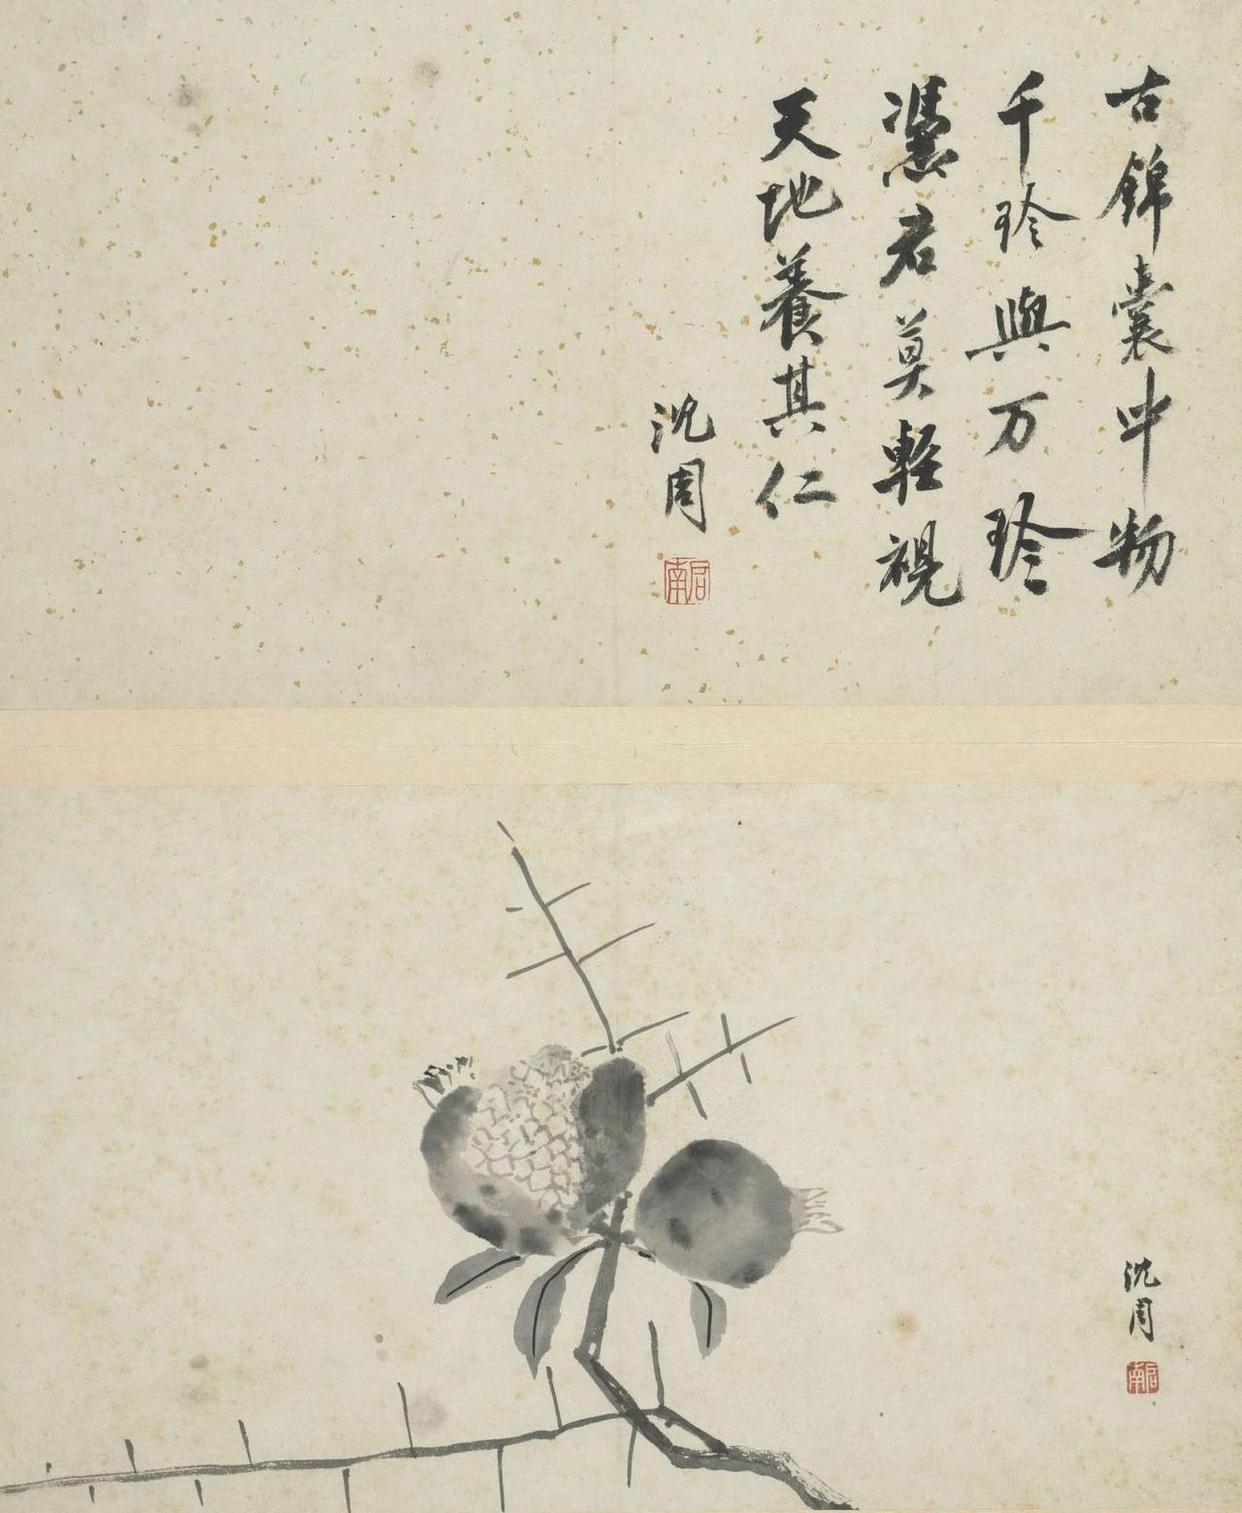 古錦囊中物
千珍與万珍
憑君莫輕視
天地養其仁
沈周
啟南
沈周
啟南